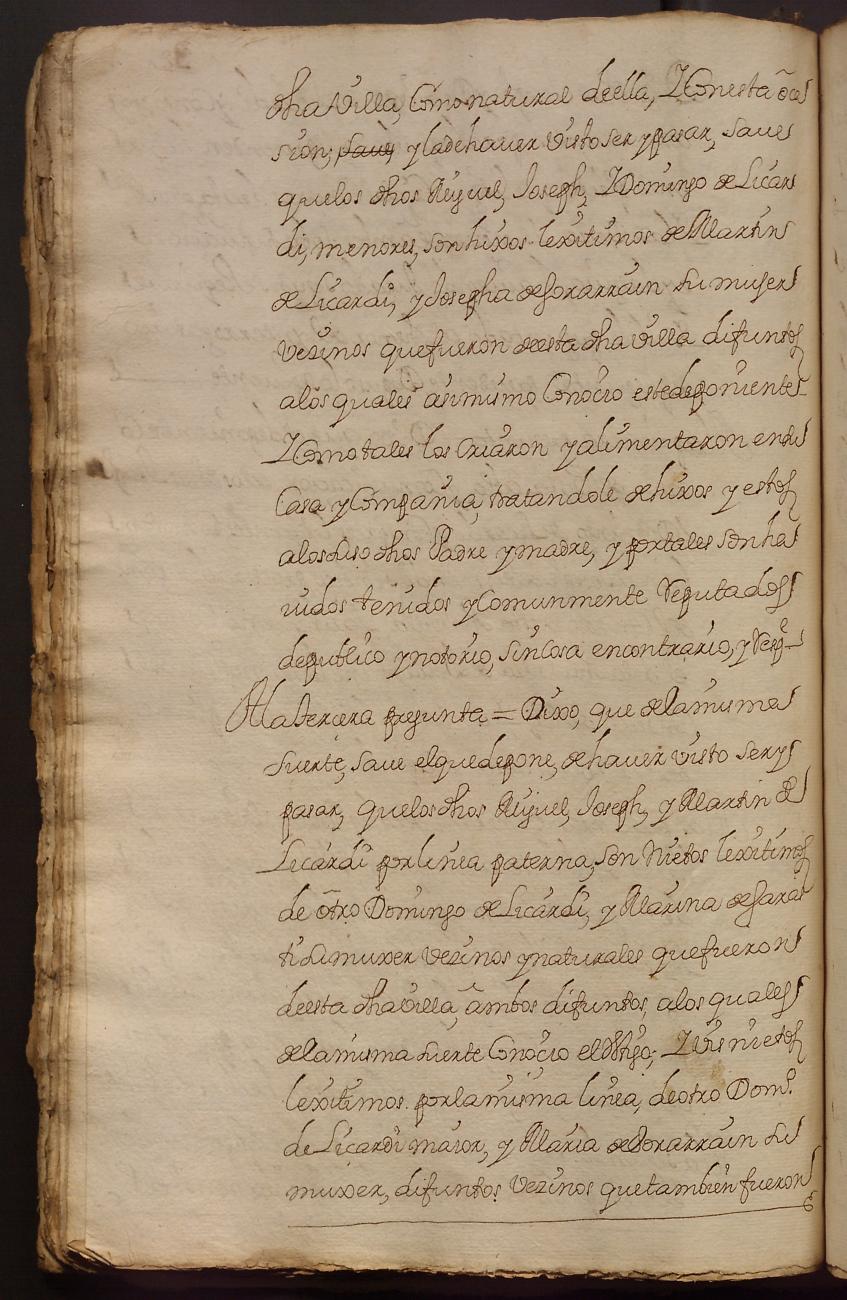 dha Villa, Como natural deella, Y Con esta oca
sion, save y la de haver visto ser y pasar, save
que los dhos Miguel, Joseph, Y Domingo de Licar
di, menores, son hixos lexitimos de Martin
de Licardi, y Josepha de Sorarrain su muger
vezinos que fueron de esta dha villa difuntos
a los quales asimismo Conocio este deponiente
Y Como tales los Criaron y alimentaron en su
Casa y Compañia, tratandole de hixos y estos
a los suso dhos Padre y madre, y por tales son ha
vidos tenidos y Comunmente Reputados
de publico y notorio, sin Cosa en contrario, y Resp.
A la tercera pregunta = Dixo, que de la misma
suerte, save el que depone, de haver visto ser y
pasar, que los dhos Miguel, Joseph, y Martin de
Licardi por linea paterna, son Nietos lexitimos
de otro Domingo de Licardi, y Marina de Garai
ti su muxer vezinos y naturales que fueron
de esta dha villa, ambos difuntos, a los quales
de la misma suerte Conocio el testigo; Y Visnietos
lexitimos por la misma linea, de otro Domo.
de Licardi maior, y Maria de Sorarrain su
muxer, difuntos Vezinos que tambien fueron